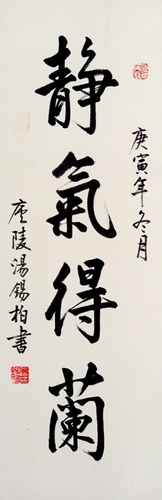 静氣得蘭
庚寅年冬月
庐陵湯錫柏書